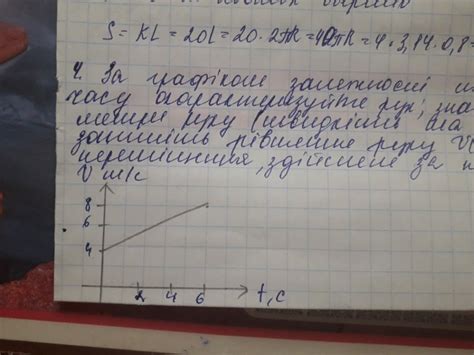 S = KL = 20L = 20 · 2πR = 40πR = 4 · 3,14 · 0,8 =
4. За графіком залежності
часу охарактеризуйте рух, зна
метри руху (швидкість
запишіть рівняння руху V(
переміщення, здійснене за
V м/с
8
6
4
2 4 6 t, c